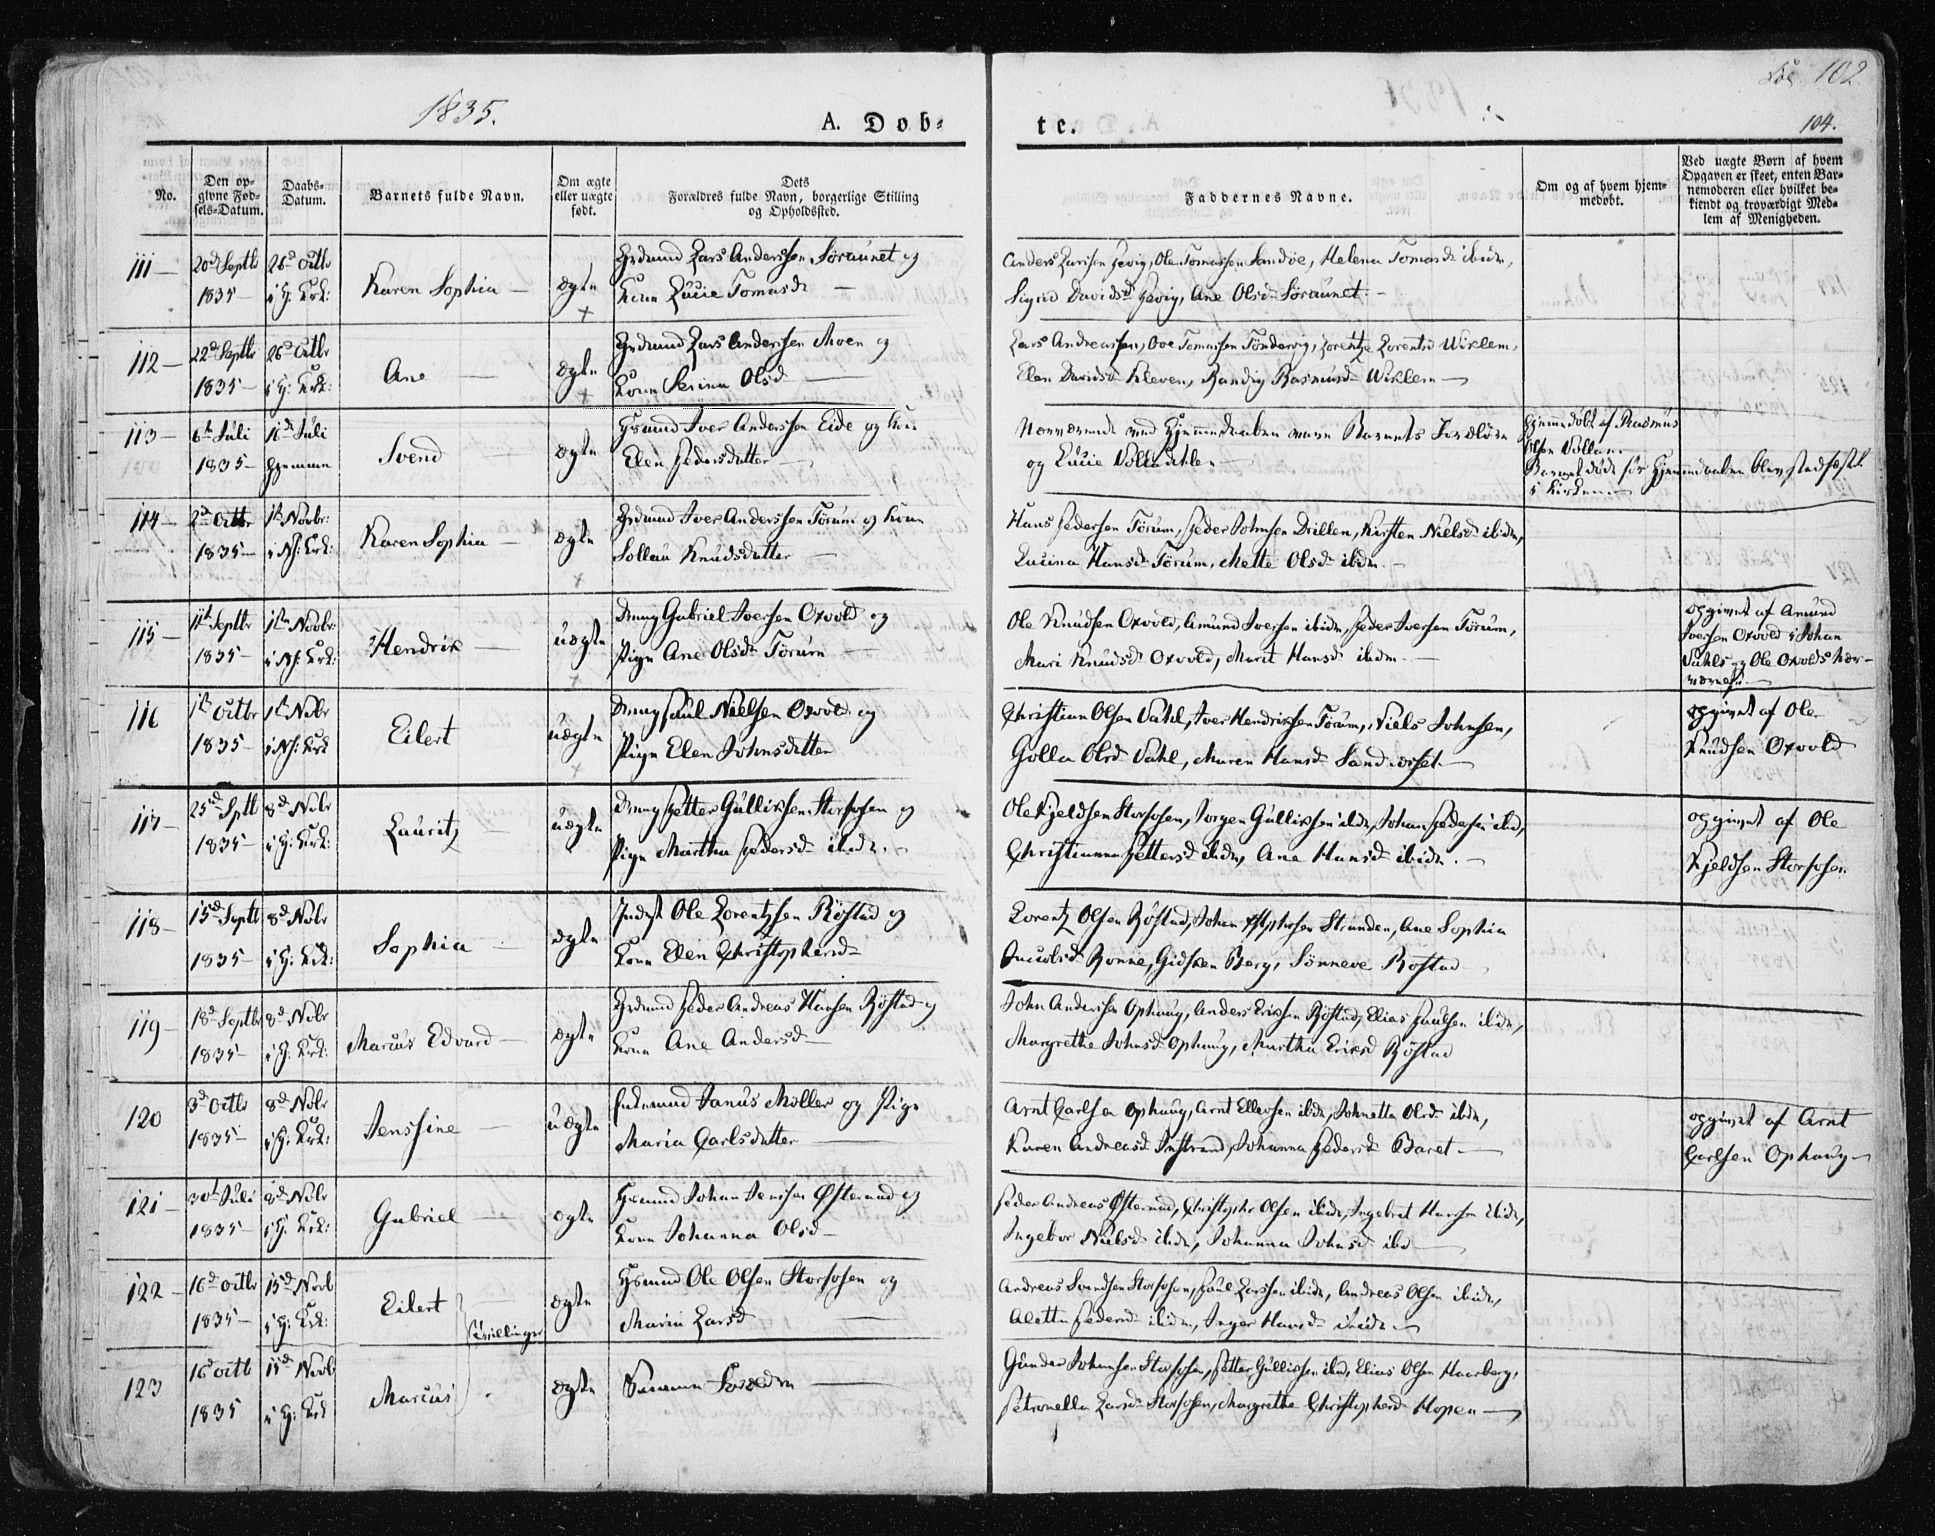 1835.
A. Døb-
te.
102
104.
No.
Den op-
givne Fød-
sels-Datum.
Daabs-
Datum.
Barnets fulde Navn.
Om ægte
eller uægte
født.
Dets
Forældres fulde Navn, borgerlige Stilling
og Opholdssted.
Faddernes Navne.
Om og af hvem hjem-
medøbt.
Ved uægte Børn af hvem
Opgaven er skeet, enten Bar-
nemoderen eller hvilket be-
kiendt og troværdigt Med-
lem af Menigheden.
111 — 20d Septbr 26d Octbr Karen Sophia — ægte Lars Anderssen Søraunet og
1835 — Kone Lucie Tomasd —
Anders Larsen Hevig, Ole Tomassen Sandøe, Helena Tomasd ibidm,
Sigrid Davidsd Hevig, Ane Olsd Søraunet. —
112 — 22d Septbr 26d Octbr Ane — ægte Lars Anderssen Moen og
1835 — Kone Serina Olsd —
Lars Andreassen, Ove Tomassen Tøndervig, Lorentze Lorentsd Wiklem,
Elen Davidsd Kleven, Randig Rasmusd Wiklem —
113 — 6te Juli 16de Juli Svend ægte Iver Anderssen Eide og Kone
1835 — Hjemme Elen Pedersdatter —
Nærværende ved Hjemmedaaben vare Barnets Forældre
og Lucie —
Hjemmedøbt af Rasmus
Olsen Vollan.
Barnet døde før Hjemmedaaben blev stadfæstet
i Kirken —
114 — 2d Octbr 1ste Novbr: Karen Sophia — ægte Iver Anderssen Tørum og Kone
1835 — Sollau Knudsdatter —
Hans Pedersen Tørum, Peder Johnsen Drillen, Kirsten Nielsd ibidm,
Lucina Hansd Tørum, Mette Olsd ibdm. —
115 — 11te Septbr 1ste Novbr: Hendrik — uægte Gabriel Iversen Oxvold og
1835 — Pige Ane Olsd Tørum —
Ole Knudsen Oxvold, Amund Iversen ibidm, Peder Iversen Tørum,
Mari Knudsd Oxvold, Marit Hansd ibdm. —
opgivet af Amund
Iversen Oxvold i Johan
Vahls og Ole Oxvolds Nær-
værelse. —
116 1ste Octbr 1ste Nvbr Eilert uægte Paul Nielsen Oxvold og
1835 — Pige Elen Johnsdatter
Christian Olsen Vahl, Iver Hendriksen Tørum, Niels Johnsen,
Golla Olsd Vahl, Maren Hansd Sandværset. —
opgivet af Ole
Knudsen Oxvold
117 — 25de Sptb 8de Nvbr Lauritz — uægte Petter Gulliksen Storfosen og
1835 — Pige Martha Pedersd ibidm. —
Ole Kjeldsen Storfosen, Jørgen Gulliksen ibidm, Johan Pedersen ibid,
Christianna Pettersd ibidm, Ane Hansd ibidm. —
opgivet af Ole
Kjeldsen Storfosen
118 — 15d Septb 8d Nvbr Sophia — ægte Inderst Ole Lorentzsen Røstad og
1835 — Kone Elen Christophersd —
Lorentz Olsen Røstad, Johan Stranden, Ane Sophia
Jacobsd Rønne, Gidsken Berg, Sønneve Røstad —
119 — 18d Septbr 8d Nvbr Marcus Edvard — ægte Peder Andreas Hansen Røstad og
1835 — Kone Ane Andersd —
John Andersen Ophaug, Anders Eriksen Røstad, Elias Paulsen ibidm,
Margrethe Johnsd Ophaug, Martha Eriksd Røstad
120 3d Octbr 8d Nvbr Jensine — uægte Janus Møller og Pige
1835 — Maria Carlsdatter —
Arnt Carlsen Ophaug, Arnt Ellevsen ibidm, Johnetta Olsd ibdm,
Karen Andreasd Instrand, Johanna Pedersd Baret —
opgivet af Arnt
Carlsen Ophaug —
121 — 30te Juli 8de Nvbr Gabriel — ægte Johan Jensen Østeraad og
1835 — Kone Johanna Olsd —
Peder Andreas Østeraad, Christopher Olsen ibidm, Ingebret Hansen ibidm,
Ingebor Nielsd ibidm, Johanna Johnsd ibd —
122 — 16d Octbr 15d Novb Eilert — ægte Ole Olsen Storfosen og
1835 — Tvillinger Maria Larsd —
Andreas Svendsen Storfosen, Paul Larssen ibidm, Andreas Olsen ibidm,
Aletta Pedersd ibidm, Inger Hansd ibidm —
123 16d Octb 15d Novb Marcus ægte Samme Forældre —
1835
Gunder Johansen Storfosen, Petter Gulliksen ibid, Elias Olsen Haarberg,
Petronella Larsd Storfosen, Margrethe Christophersd Hopen —